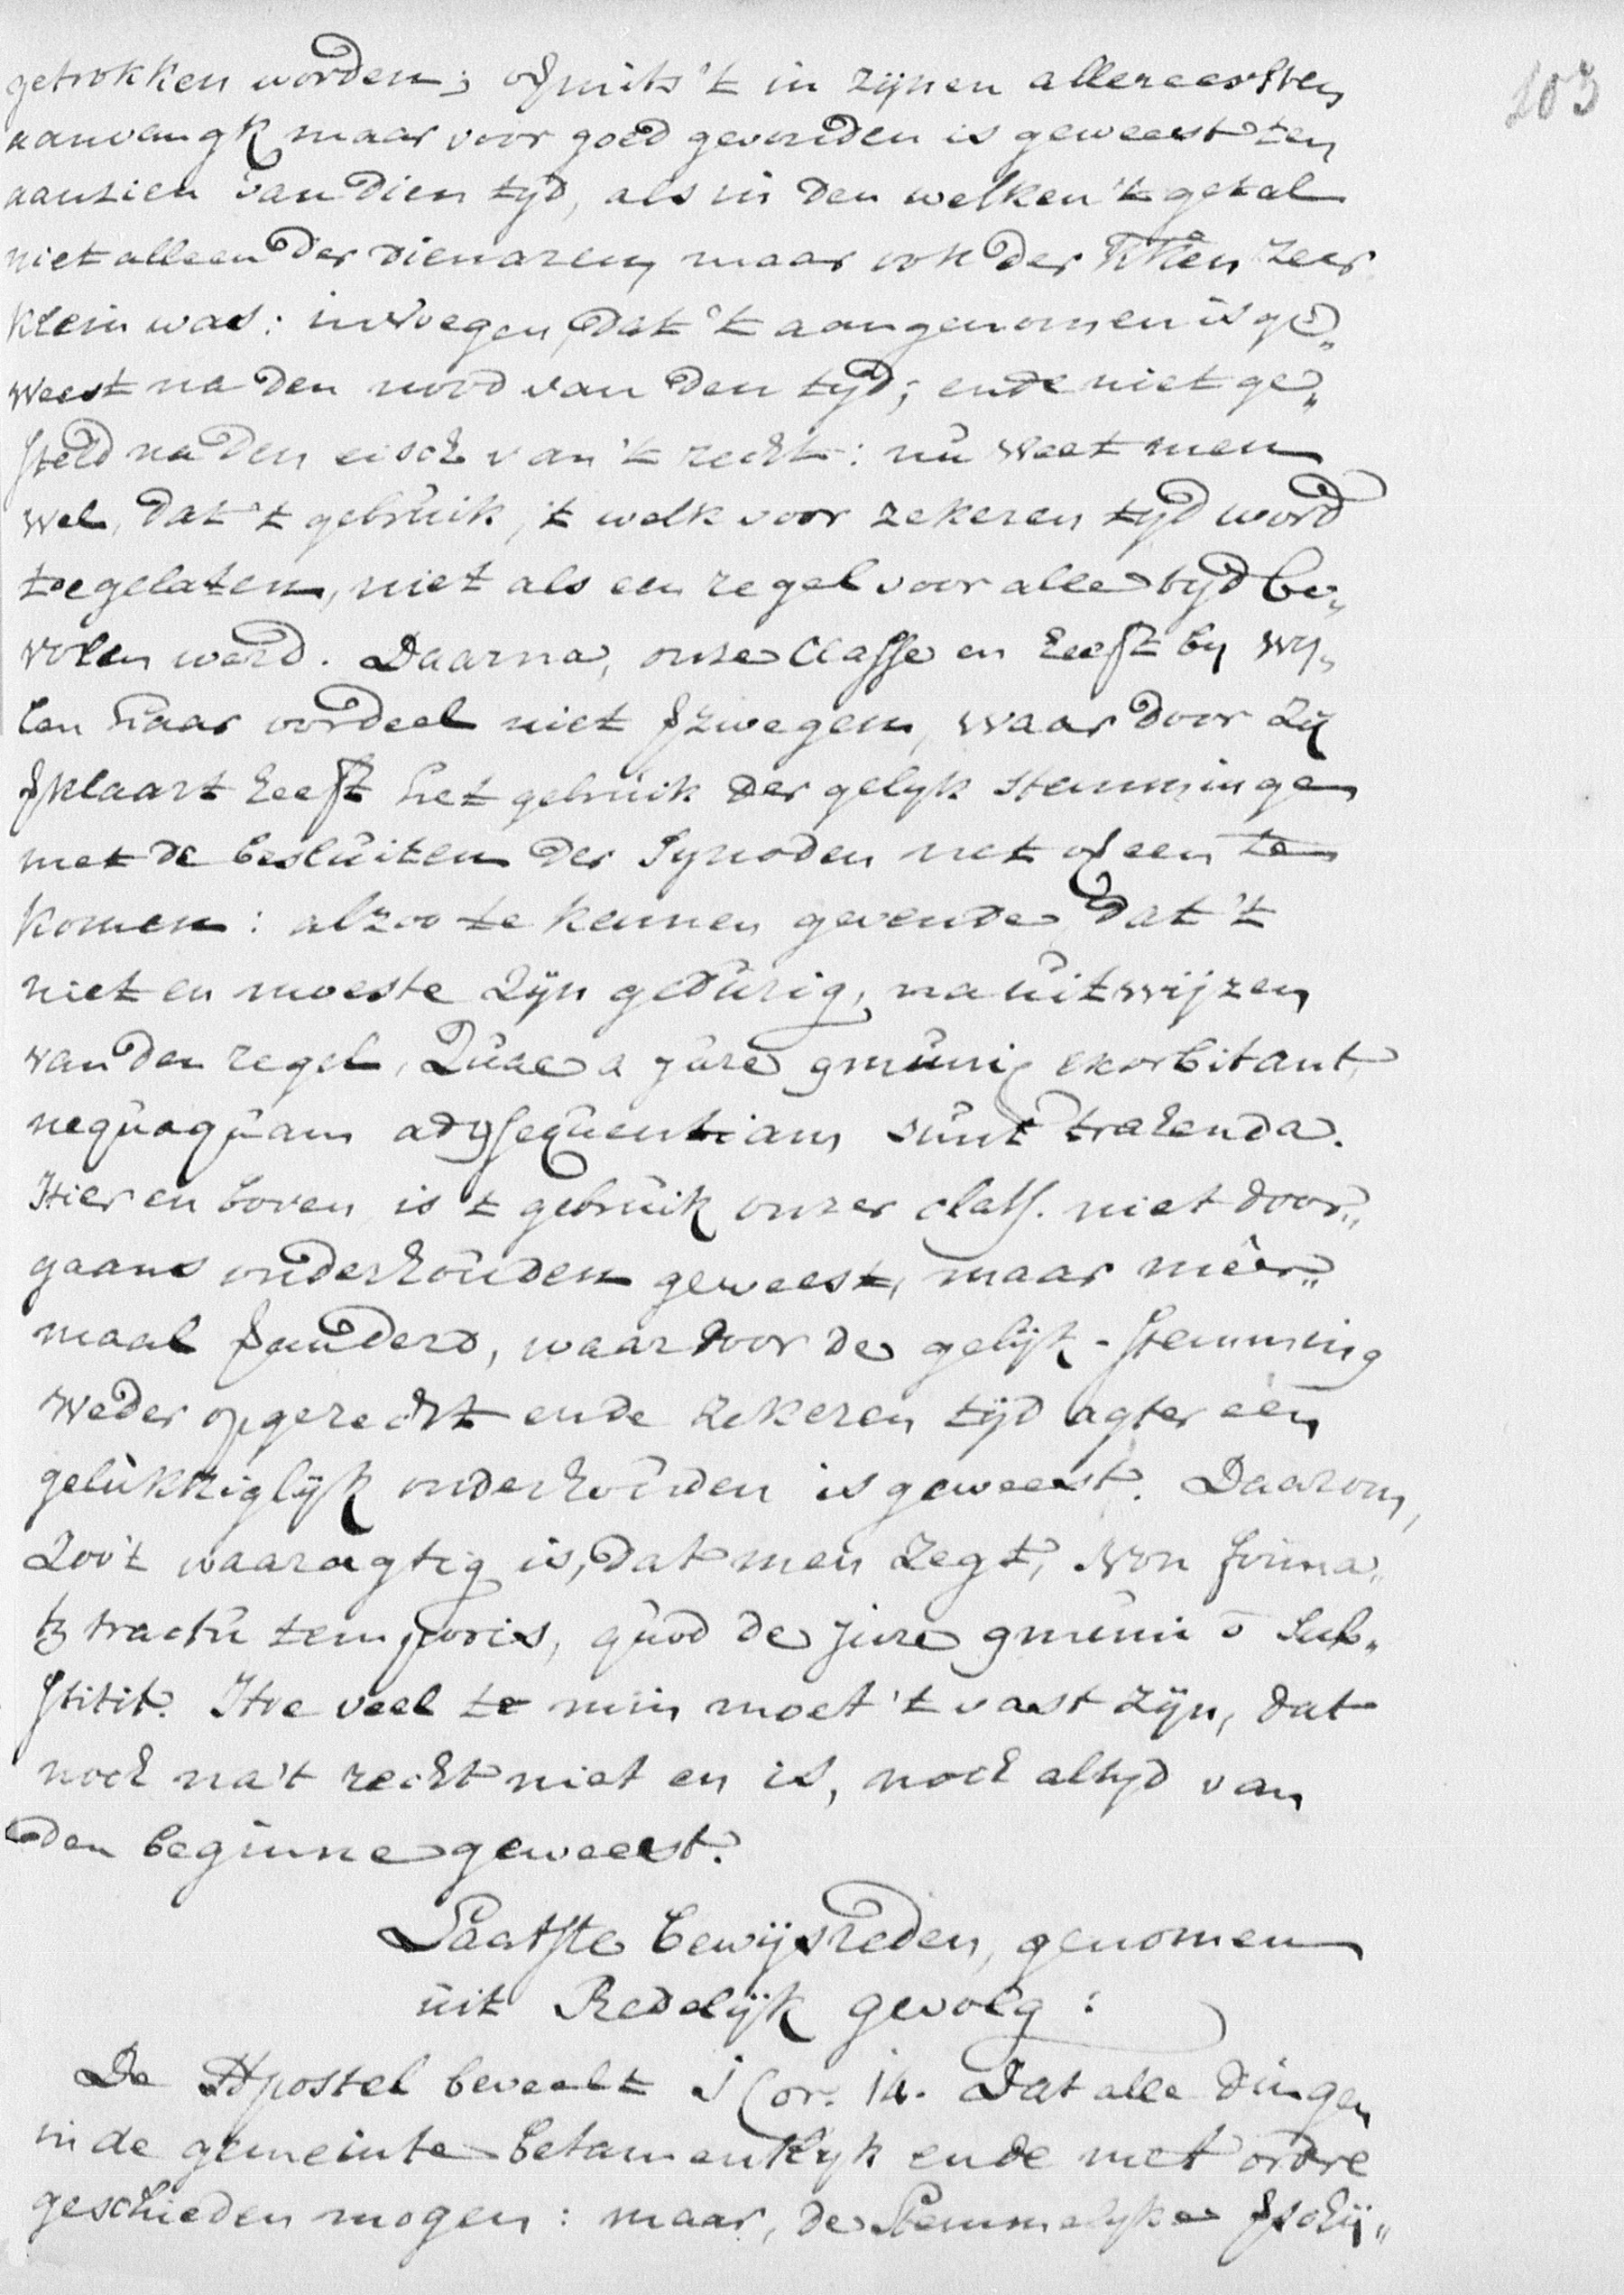 103
getrokken worden; vermits 't in zijnen allereersten
aanvangk maar voor goed gevonden is geweest ten
aanzien van dien tyd, als in den welken 't getal
niet alleen der dienaren, maar ook der kken zeer
klein was: invoegen, dat 't aangenomen is ge„
weest na den nood van den tyd; ende niet ge„
steld na den eisch van 't recht: nu weet men
wel, dat 't gebruik, 't welk voor zekeren tyd word
toegelaten, niet als een regel voor alle tyd be„
volen werd. Daarna, onse Classe en heeft by wy„
len haar oordeel niet verzwegen, waar door zy
verklaart heeft het gebruik der gelyk stemmingen
met de besluiten der Synoden net overeen te
komen: alzoo te kennen gevende, dat 't
niet en moeste zijn gedurig, na uitwijzen
van den regel, Quae a jure communi exorbitant,
nequaquam ad consequentiam sunt trahenda.
Hier en boven is 't gebruik onzer class. niet door„
gaans onderhouden geweest, maar meer„
maal veranderd, waar door de gelijk-stemming
weder opgerecht ende zekeren tijd agter een
gelukkiglijk onderhouden is geweest. Daarom,
Zoo't waaragtig is, dat men zegt, Non firma„
tur tractu temporis, quod de jure communi non sub„
stitit. Hoe veel te min moet 't vast zijn, dat
noch na't recht niet en is, noch altyd van
den beginne geweest.
Laatste bewijsreden, genomen
uit Redelijk gevolg:
De Apostel beveelt 1 Cor. 14. Dat alle dingen
in de gemeinte betamentlyk ende met ordre
geschieden mogen: maar, de Stemmelyke verschij„